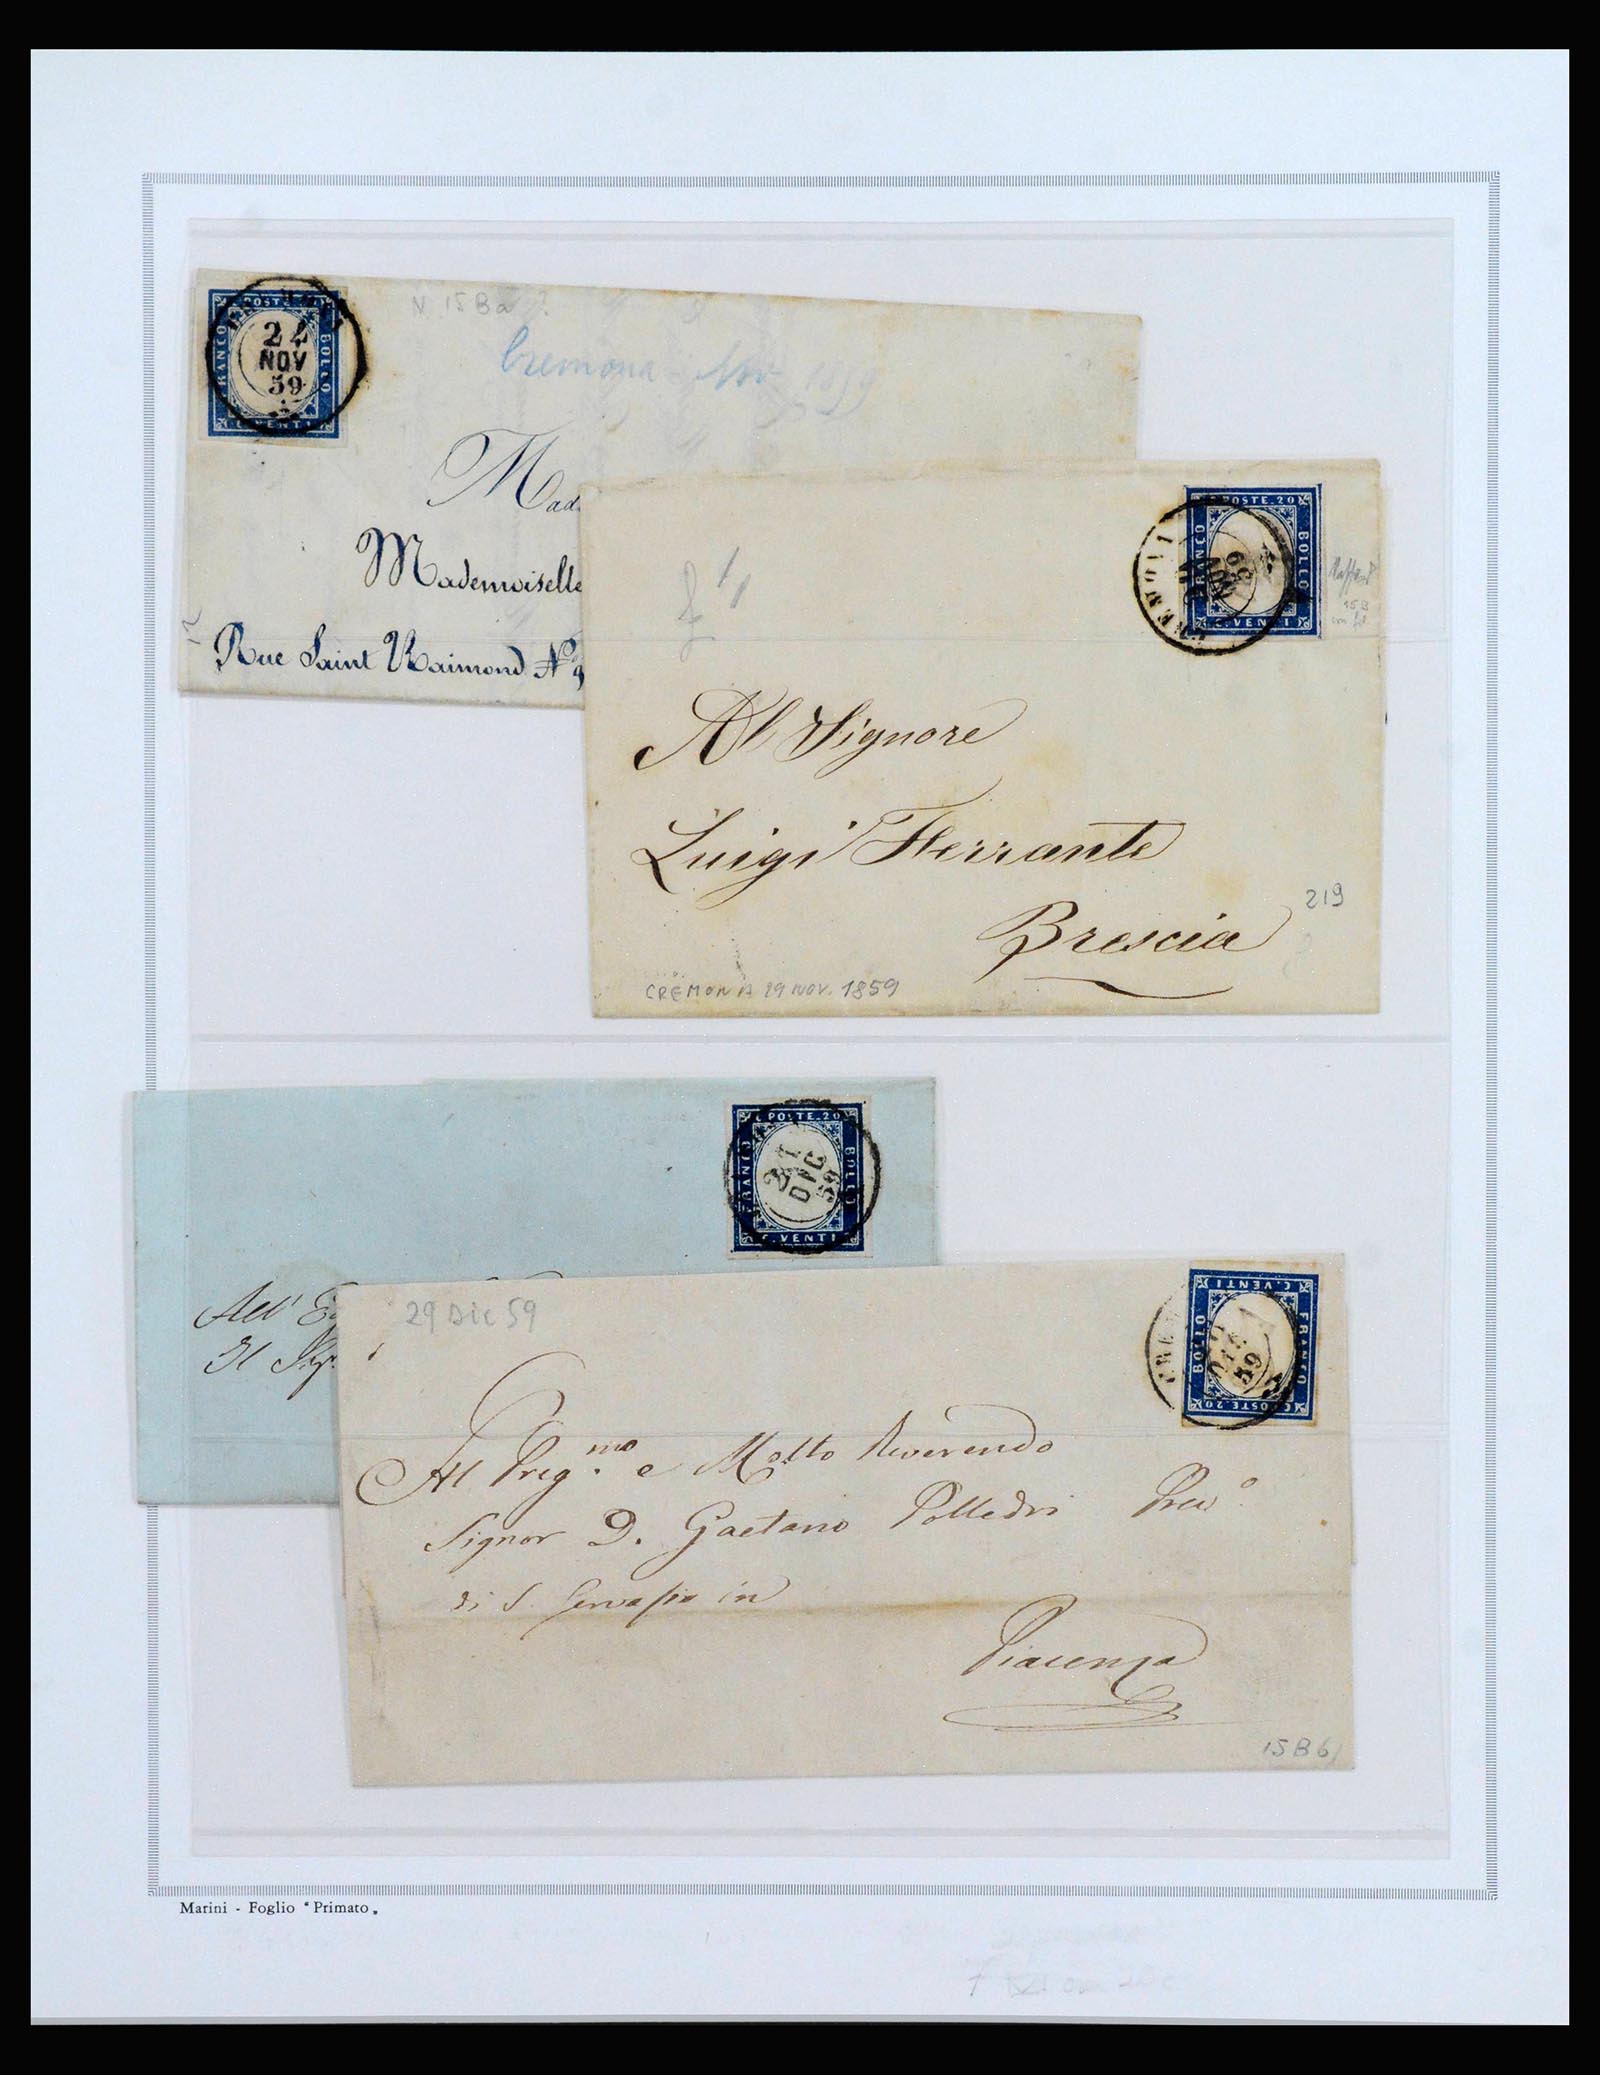 C. POSTE. 20
FRANCO
BOLLO
C. VENTI
22
NOV
59
N 15Ba ?
Cremona Nov 1859
Mad
Mademoiselle
Rue Saint Raimond N° 3
C. POSTE. 20
FRANCO
BOLLO
C. VENTI
CREMONA
NOV
59
15B
Al Signore
Luigi Ferrante
Brescia
219
CREMONA 29 NOV. 1859
C. POSTE. 20
FRANCO
BOLLO
C. VENTI
DIC
59
All'
Il Sig.
29 Dic 59
C. POSTE. 20
FRANCO
BOLLO
C. VENTI
CRE
DIC
59
Al Preg.mo e Molto Reverendo
Signor D. Gaetano Polledri
di S. Gervasio in
Piacenza
15B6
Marini - Foglio "Primato"